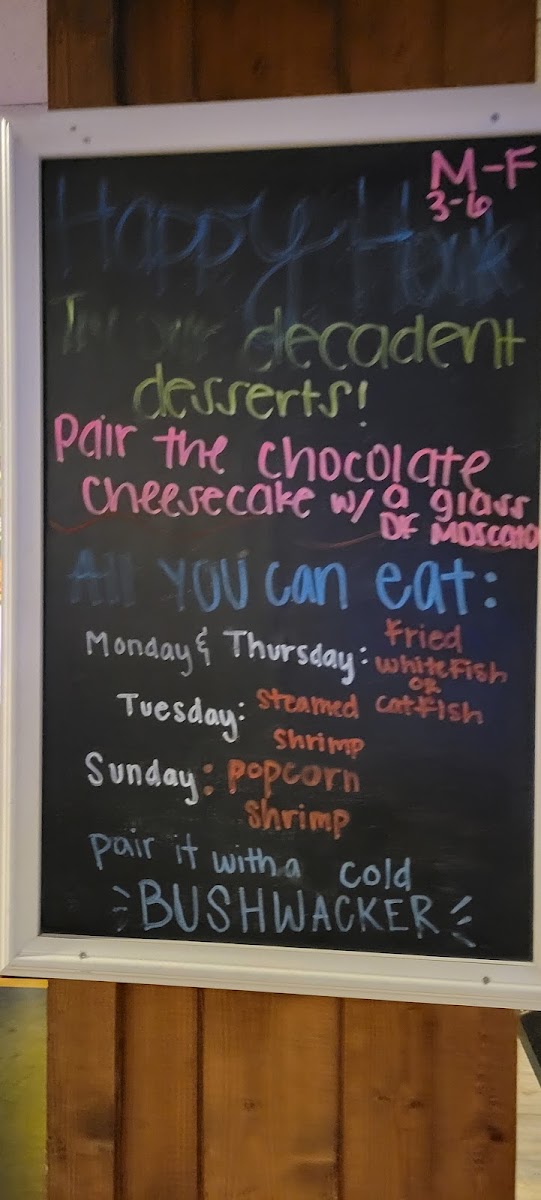 Happy Hour
M-F
3-6
decadent
desserts!
Pair the chocolate
cheesecake w/ a glass
OF MOSCATO
All you can eat:
Monday & Thursday: Fried
whitefish
or
catfish
Tuesday: steamed
shrimp
Sunday: popcorn
shrimp
pair it with a cold
BUSHWACKER